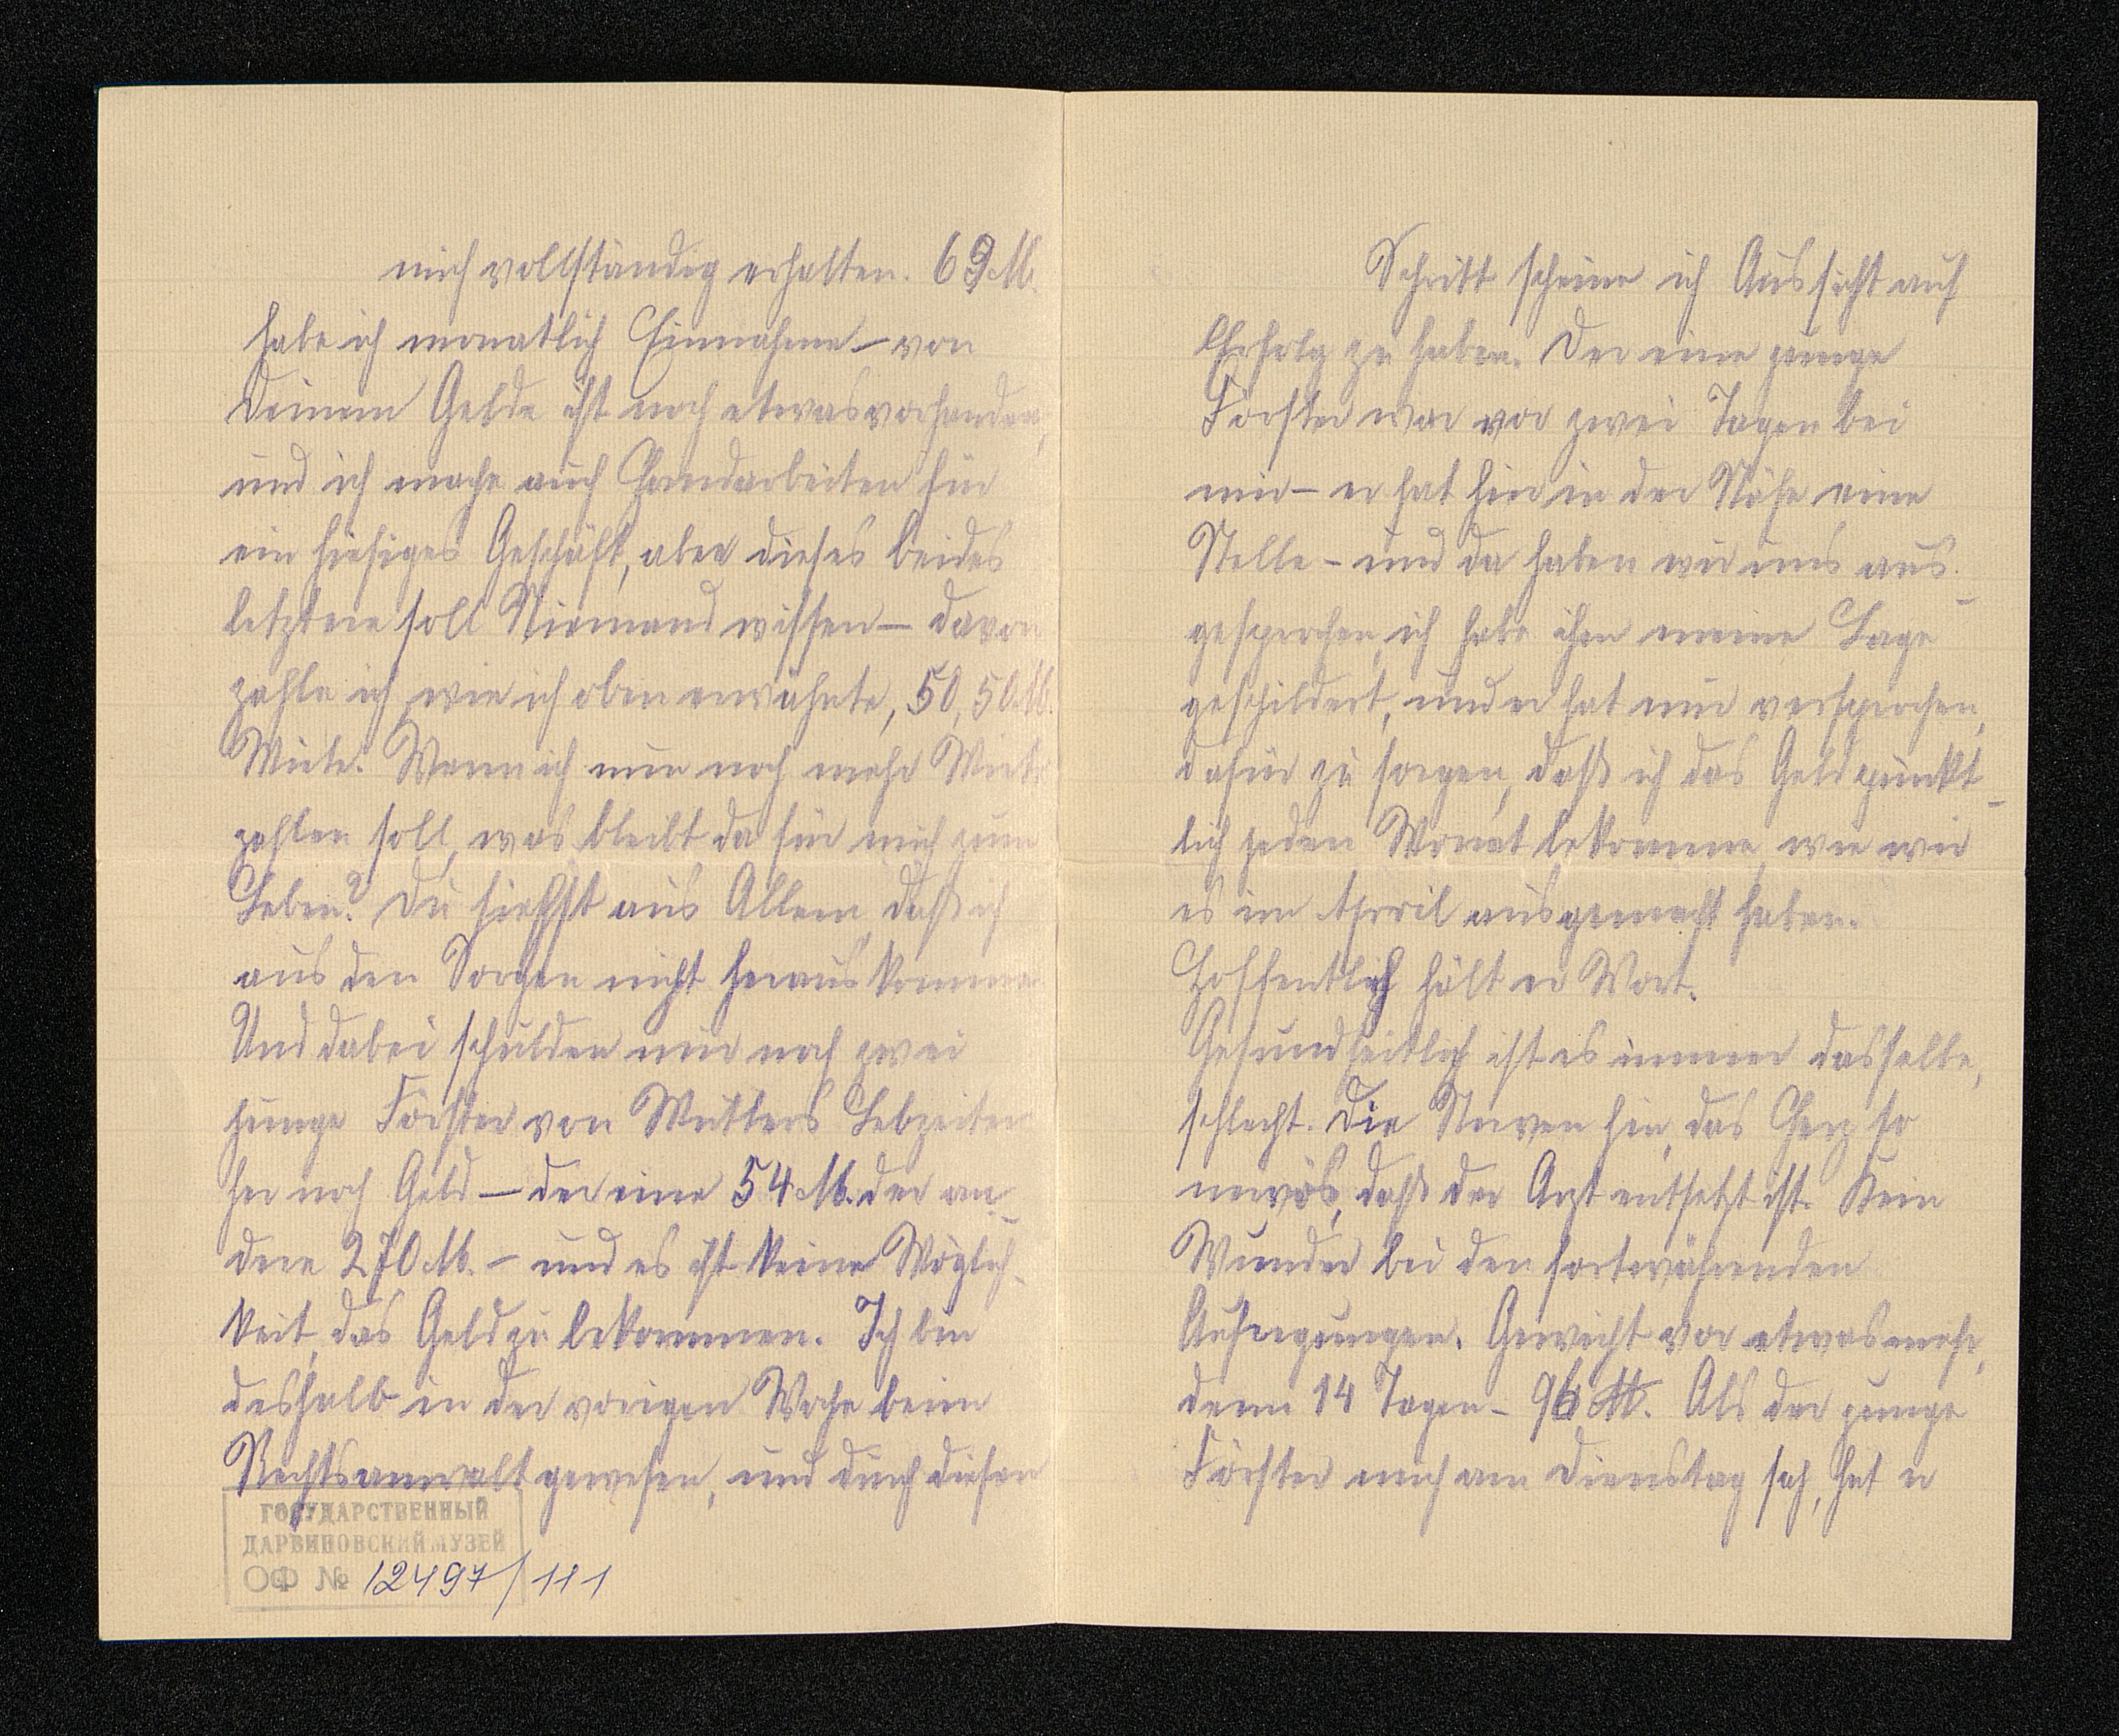 mich vollständig erhalten. 69 M.
habe ich monatlich Einnahme – von
Deinem Gelde ist noch etwas vorhanden,
und ich mache auch Handarbeiten für
ein hiesiges Geschäft, aber dieses beides
letztere soll Niemand wissen – davon
zahle ich, wie ich oben erwähnte, 50,50 M.
Miete. Wenn ich nun noch mehr Miete
zahlen soll, was bleibt da für mich zum
Leben? Du siehst aus Allem, daß ich
aus den Sorgen nicht herauskomme
Und dabei schulden mir noch zwei
junge Förster von Mutters Lebzeiten
her noch Geld – der eine 54 M. der an-
dere 270 M. – und es ist keine Möglich-
keit, das Geld zu bekommen. Ich bin
deshalb in der vorigen Woche beim
Rechtsanwalt gewesen, und durch diesen
ГОСУДАРСТВЕННЫЙ
ДАРВИНОВСКИЙ МУЗЕЙ
ОФ № 12497/111
Schritt scheine ich Aussicht auf
Erfolg zu haben. Der eine junge
Förster war vor zwei Tagen bei
mir – er hat hier in der Nähe eine
Stelle – und da haben wir uns aus-
gesprochen, ich habe ihm meine Lage
geschildert, und er hat mir versprochen,
dafür zu sorgen, daß ich das Geld pünkt-
lich jeden Monat bekomme, wie wir
es im April ausgemacht haben.
Hoffentlich hält er Wort.
Gesundheitlich ist es immer dasselbe,
schlecht. Die Nerven hin, das Herz so
nervös, daß der Arzt entsetzt ist. Kein
Wunder bei den fortwährenden
Aufregungen. Gewicht vor etwas mehr,
denn 14 Tagen – 96 ℔. Als der junge
Förster mich am Dienstag sah, hat er